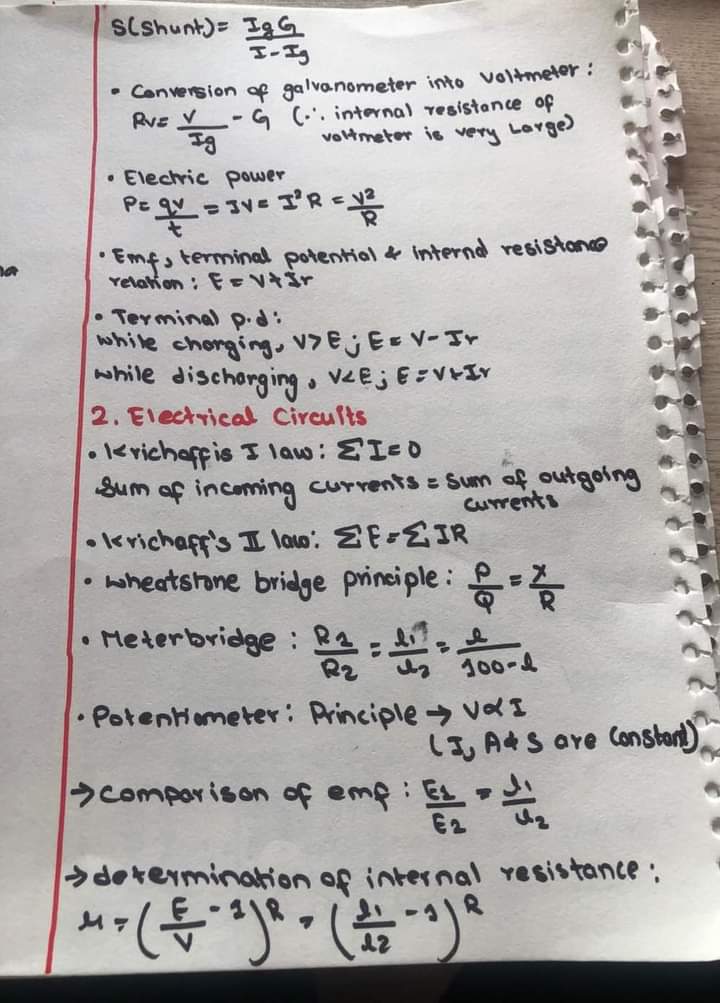 S(Shunt) = IgG / I - Ig
• Conversion of galvanometer into voltmeter :
Rv = V / Ig - G (∵ internal resistance of
voltmeter is very Large)
• Electric power
P = qv / t = IV = I²R = V² / R
• Emf, terminal potential & internal resistance
relation : E = V + Ir
• Terminal p.d :
while charging, V > E ; E = V - Ir
while discharging, V < E ; E = V + Ir
2. Electrical Circuits
• Krichoff's I law : ΣI = 0
Sum of incoming currents = Sum of outgoing
currents
• Krichaff's II law : ΣE = ΣIR
• Wheatstone bridge principle : P / Q = X / R
• Meterbridge : R1 / R2 = l1 / l2 = l / 100 - l
• Potentiometer : Principle → V ∝ I
(I, A & S are Constant)
→ Comparison of emf : E1 / E2 = l1 / l2
→ determination of internal resistance :
r = (E / V - 1)R = (l1 / l2 - 1)R